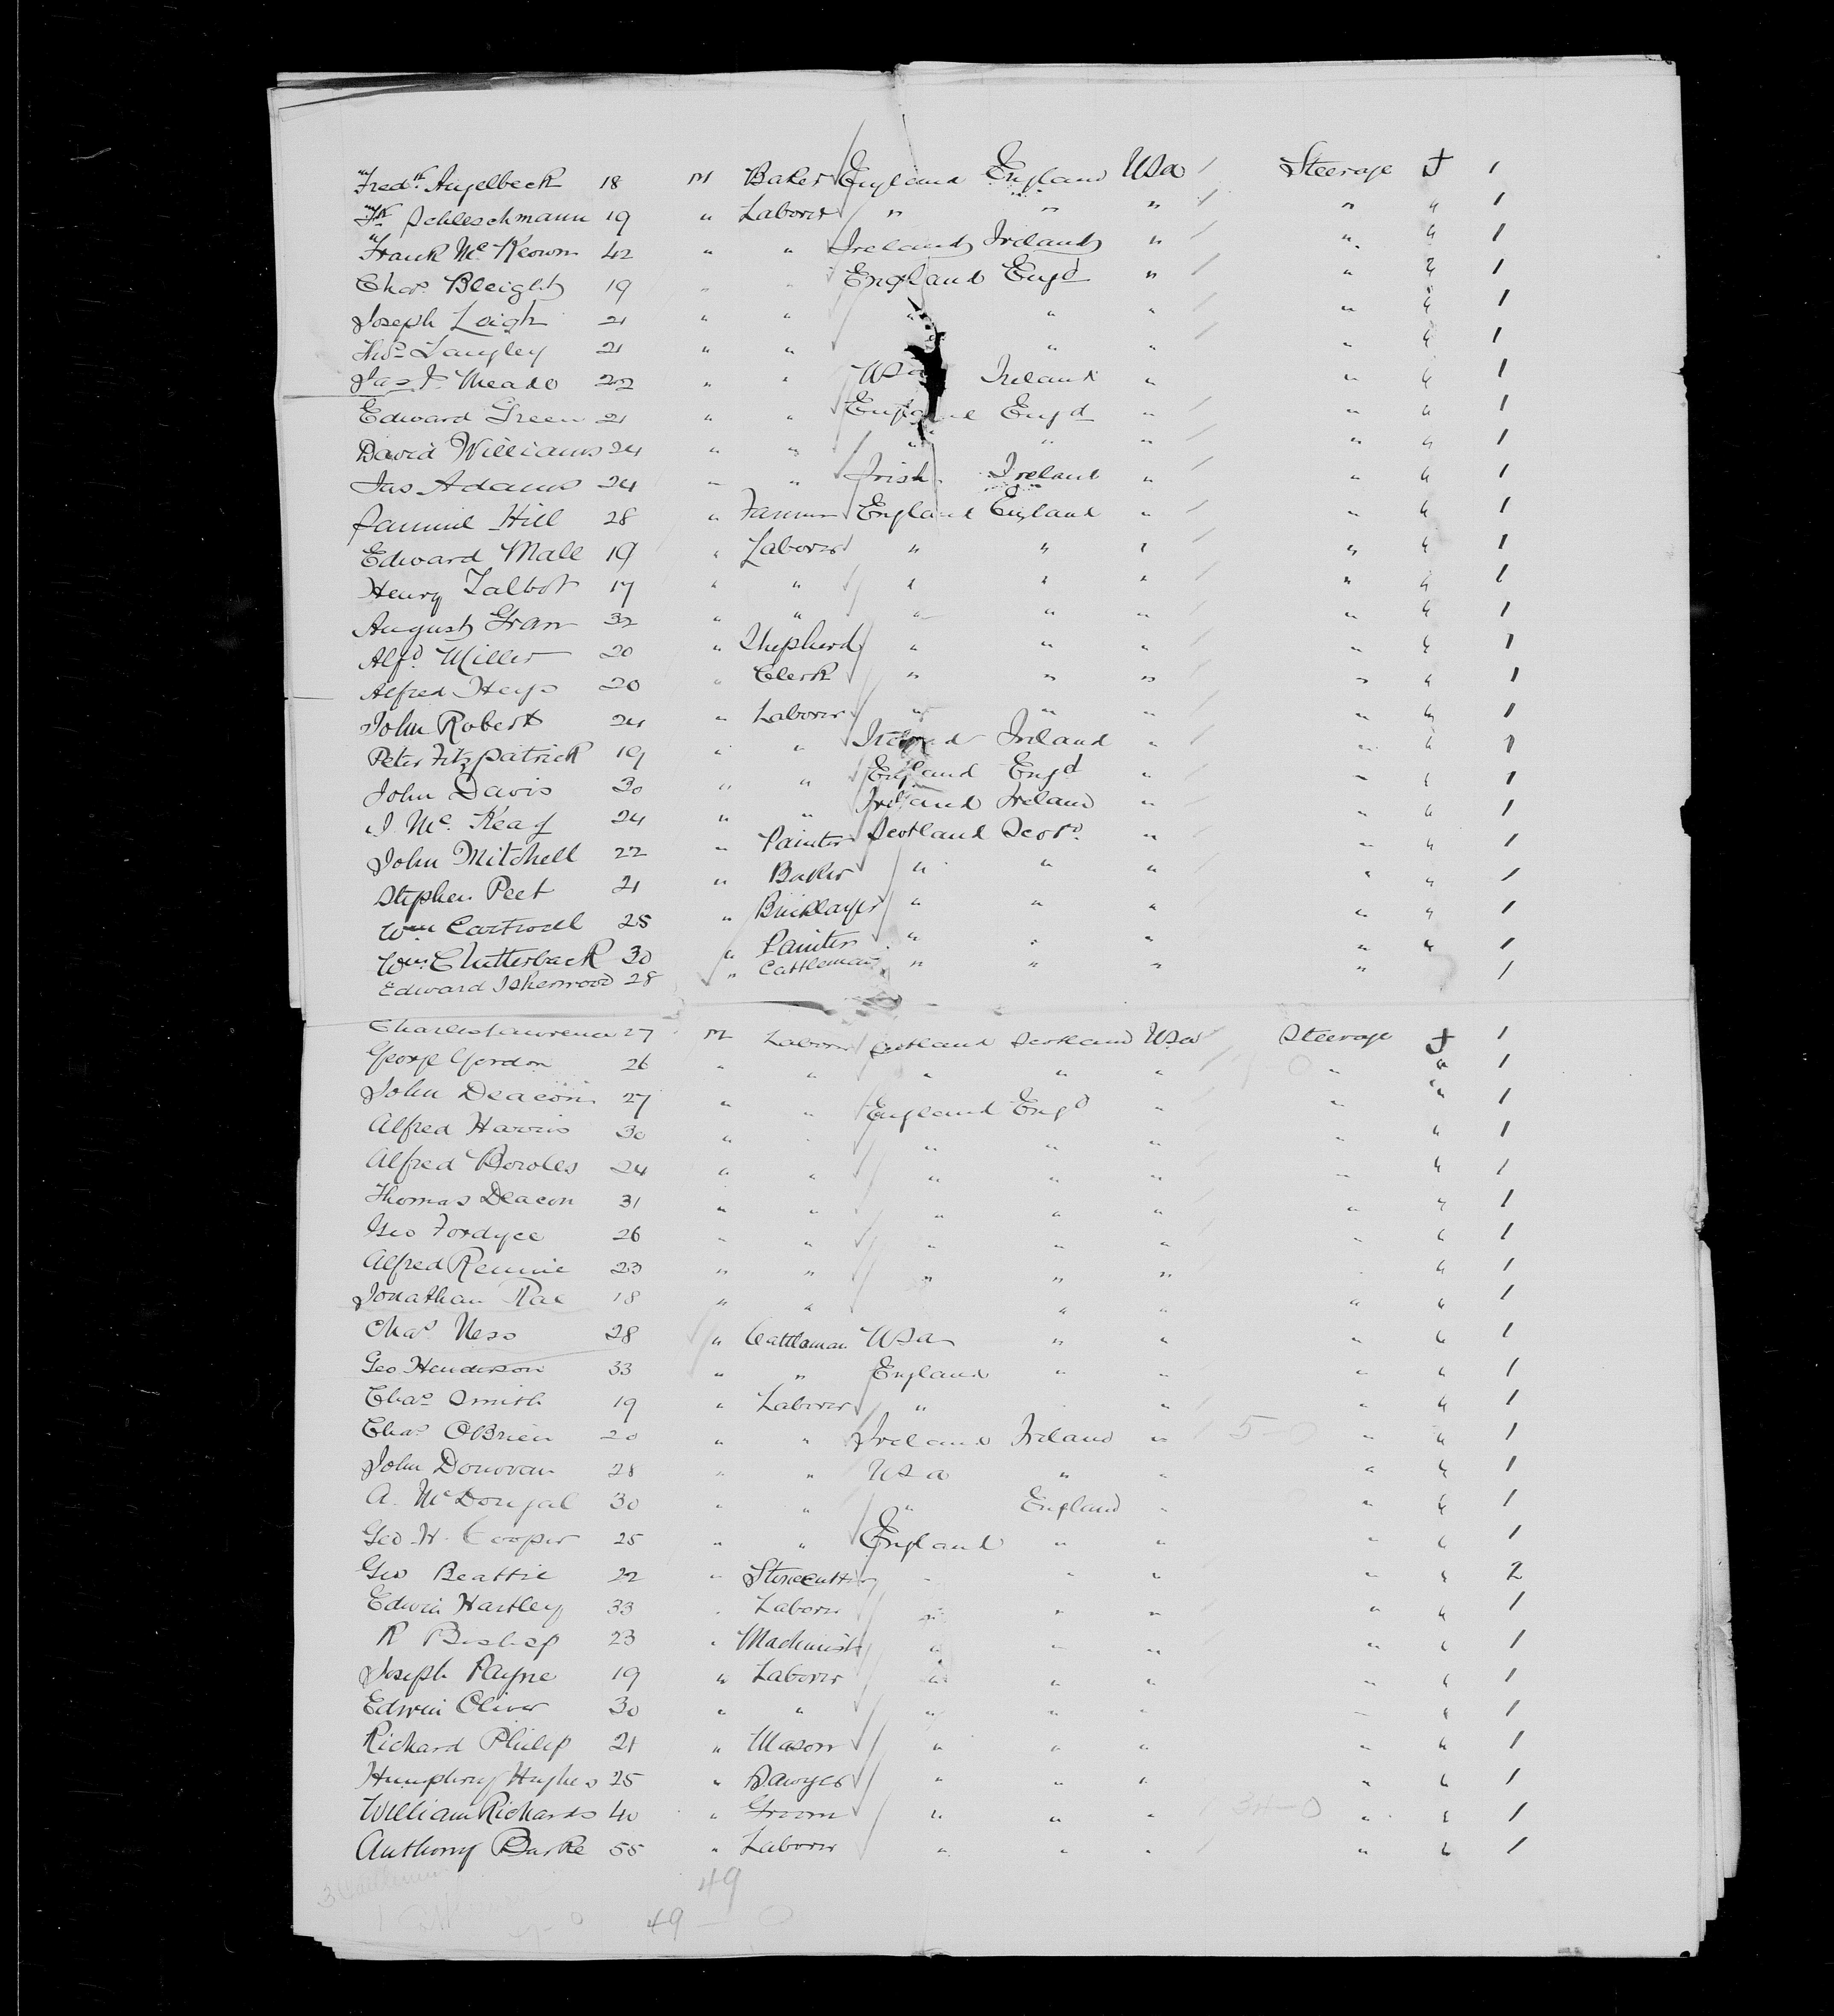 Fredk. Angelbeck 18 M Baker England England USa / Steerage J 1
Fk Schleschmann 19 " Laborer " " " / " " 1
Frank Mc Keown 42 " " Ireland Ireland " / " " 1
Chas. Bleight 19 " " England Engd " / " " 1
Joseph Leigh 21 " " " " " / " " 1
Thos Langley 21 " " " " / " " 1
Jas J. Meade 22 " " USa Ireland " " " 1
Edward Green 21 " " England Engd " / " " 1
David Williams 24 " " " " " / " " 1
Jas Adams 24 " " Irish Ireland " " " 1
Samuel Hill 28 " Farmer England England " / " " 1
Edward Male 19 " Laborer " " " / " " 1
Henry Talbot 17 " " " " " / " " 1
August Gran 32 " " " " " " " 1
Alfd. Miller 20 " Shepherd " " " / " " 1
Alfred Heys 20 " Clerk " " " / " " 1
John Roberts 24 " Laborer " " " / " " 1
Peter Fitzpatrick 19 " " Ireland Ireland " / " " 1
John Davis 30 " " England Engd " / " " 1
J. Mc. Keag 24 " " Ireland Ireland " / " " 1
John Mitchell 22 " Painter Scotland Scotd. " " " 1
Stephen Peet 21 " Baker " " " / " " 1
Wm Cartwell 25 " Bricklayer " " " / " " 1
Wm. Clutterback 30 " Painter " " " " " 1
Edward Isherwood 28 " Cattleman " " " " 1
Charles Lawrence 27 M Laborer Scotland Scotland USa / Steerage J 1
George Gordon 26 " " " " " / " " 1
John Deacon 27 " " England Engd " " " 1
Alfred Harris 30 " " " " " " " 1
Alfred Bowles 24 " " " " " " " 1
Thomas Deacon 31 " " " " " " " 1
Geo Fordyce 26 " " " " " " " 1
Alfred Rennie 23 " " " " " " 1
Jonathan Rae 18 " " " " " " 1
Chas. Ness 28 " Cattleman USa " " " " 1
Geo Henderson 33 " " England " " " " 1
Chas Smith 19 " Laborer " " / " " 1
Chas OBrien 20 " " Ireland Ireland " / 5-0 " " 1
John Donovan 28 " " USa " " " " 1
A. McDougal 30 " " " England " " " 1
Geo. H. Cooper 25 " " England " " " " 1
Geo Beattie 22 " Stonecutter " " " " " 2
Edwin Hartley 33 " Laborer " " " " " 1
R Bishop 23 " Machinist " " " " " 1
Joseph Payne 19 " Laborer " " " " " 1
Edwin Oliver 30 " " " " " " " 1
Richard Philip 21 " Mason " " " " " 1
Humphrey Hughes 25 " Sawyer " " " " " 1
William Richards 40 " Groom " " " 34-0 " " 1
Anthony Burke 55 " Laborer " " " / " " 1
49
49 - 0